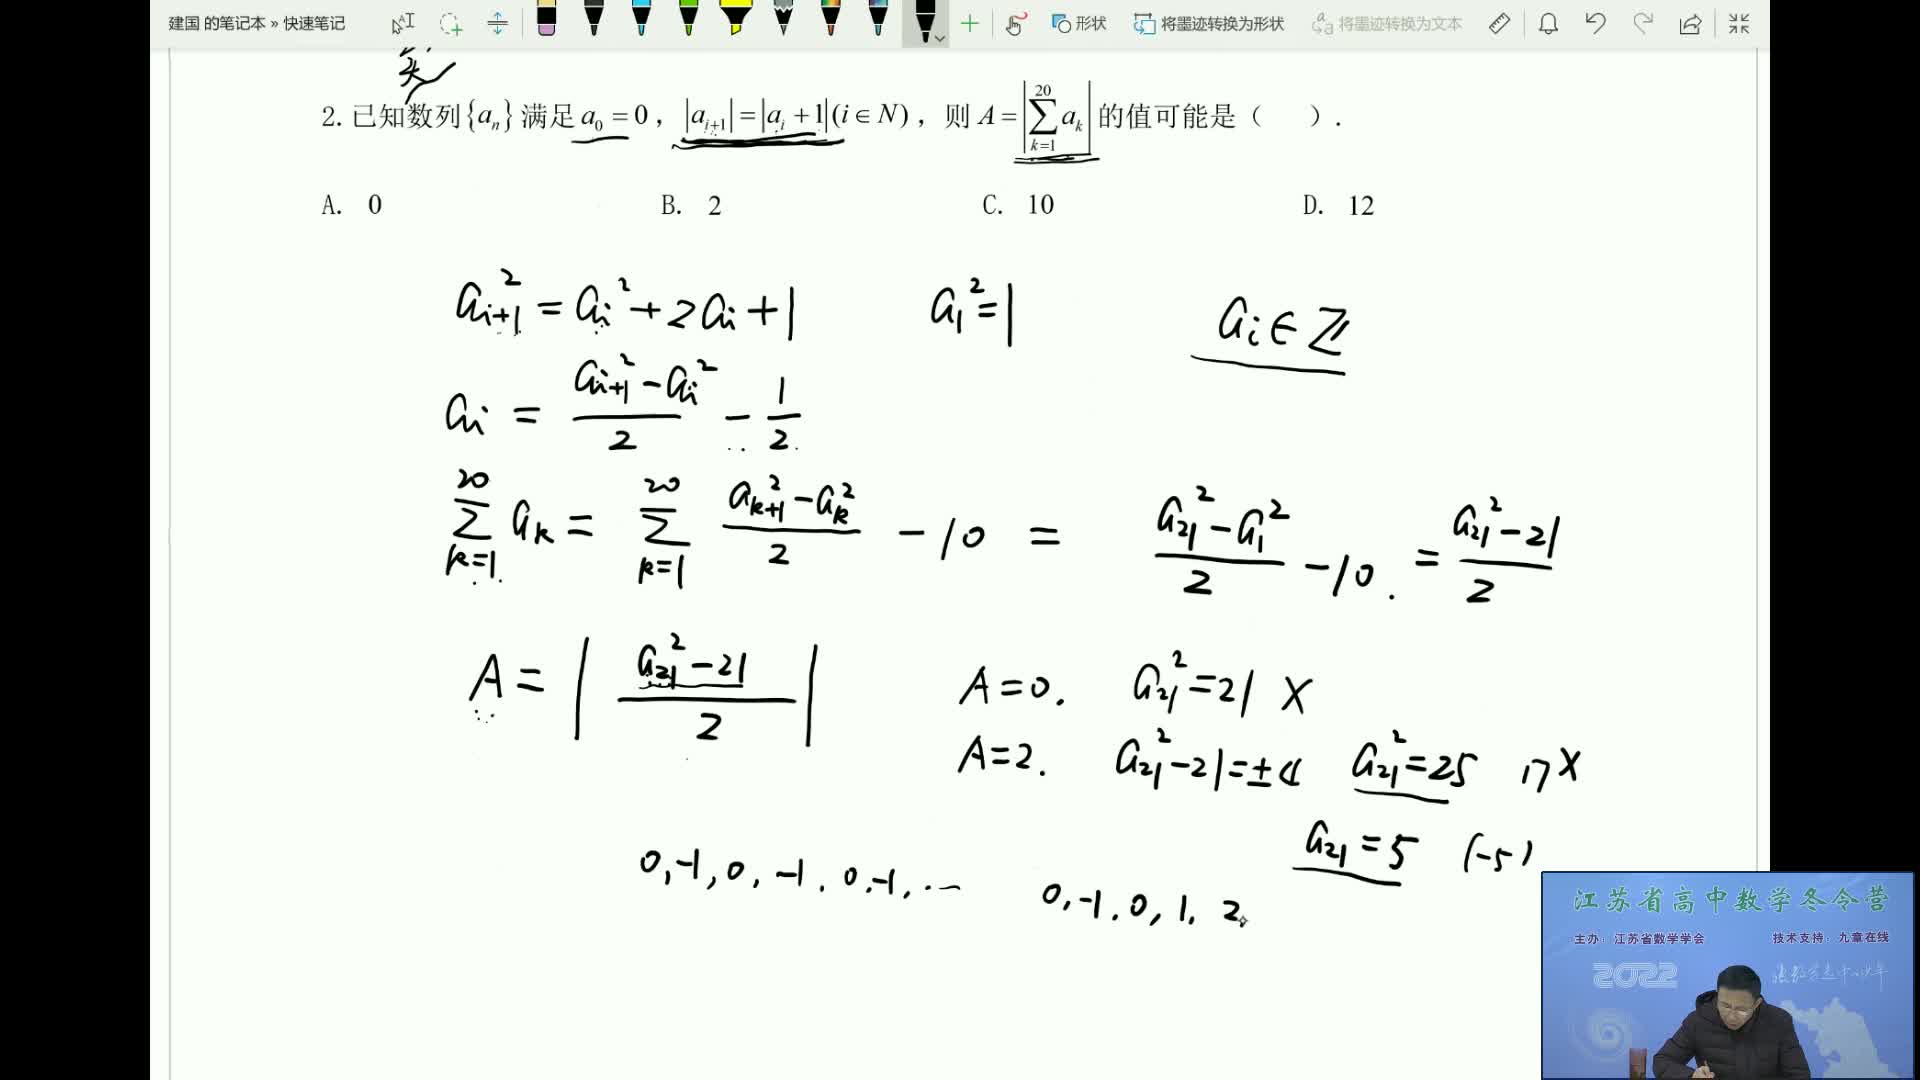 建国 的笔记本 » 快速笔记
形状
将墨迹转换为形状
将墨迹转换为文本
2. 已知数列{aₙ}满足 a₀ = 0, |aᵢ₊₁| = |aᵢ + 1| (i ∈ N), 则 A = |∑_{k=1}^{20} aₖ| 的值可能是 ( ).
A. 0 B. 2 C. 10 D. 12
aᵢ₊₁² = aᵢ² + 2aᵢ + 1 a₁² = 1 aᵢ ∈ ℤ
aᵢ = (aᵢ₊₁² - aᵢ²)/2 - 1/2
∑_{k=1}^{20} aₖ = ∑_{k=1}^{20} (aₖ₊₁² - aₖ²)/2 - 10 = (a₂₁² - a₁²)/2 - 10. = (a₂₁² - 21)/2
A = |(a₂₁² - 21)/2| A = 0. a₂₁² = 21 ×
A = 2. a₂₁² - 21 = ±4 a₂₁² = 25 17 ×
a₂₁ = 5 (-5)
0, -1, 0, -1, 0, -1, ... 0, -1, 0, 1, 2
江苏省高中数学冬令营
主办: 江苏省数学学会 技术支持: 九章在线
2022